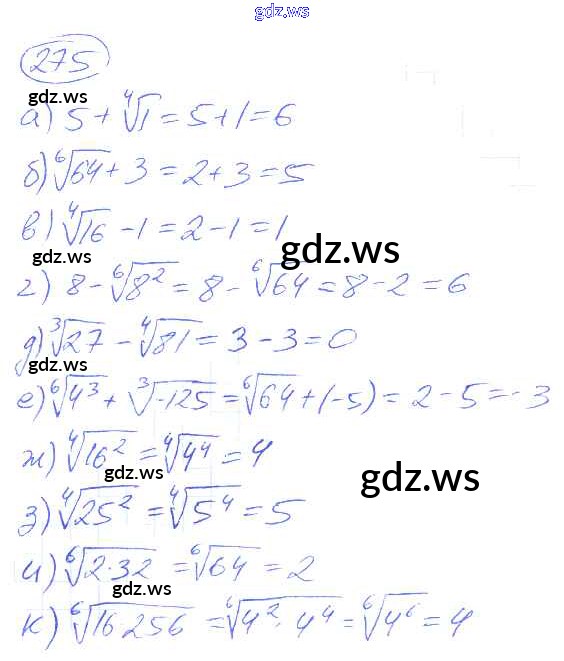 gdz.ws
275
gdz.ws
а) 5 + ⁴√1 = 5 + 1 = 6
б) ⁶√64 + 3 = 2 + 3 = 5
в) ⁴√16 - 1 = 2 - 1 = 1
gdz.ws
gdz.ws
г) 8 - ⁶√8² = 8 - ⁶√64 = 8 - 2 = 6
д) ³√27 - ⁴√81 = 3 - 3 = 0
gdz.ws
е) ⁶√4³ + ³√-125 = ⁶√64 + (-5) = 2 - 5 = -3
ж) ⁴√16² = ⁴√4⁴ = 4
gdz.ws
gdz.ws
з) ⁴√25² = ⁴√5⁴ = 5
и) ⁶√2·32 = ⁶√64 = 2
gdz.ws
к) ⁶√16·256 = ⁶√4²·4⁴ = ⁶√4⁶ = 4